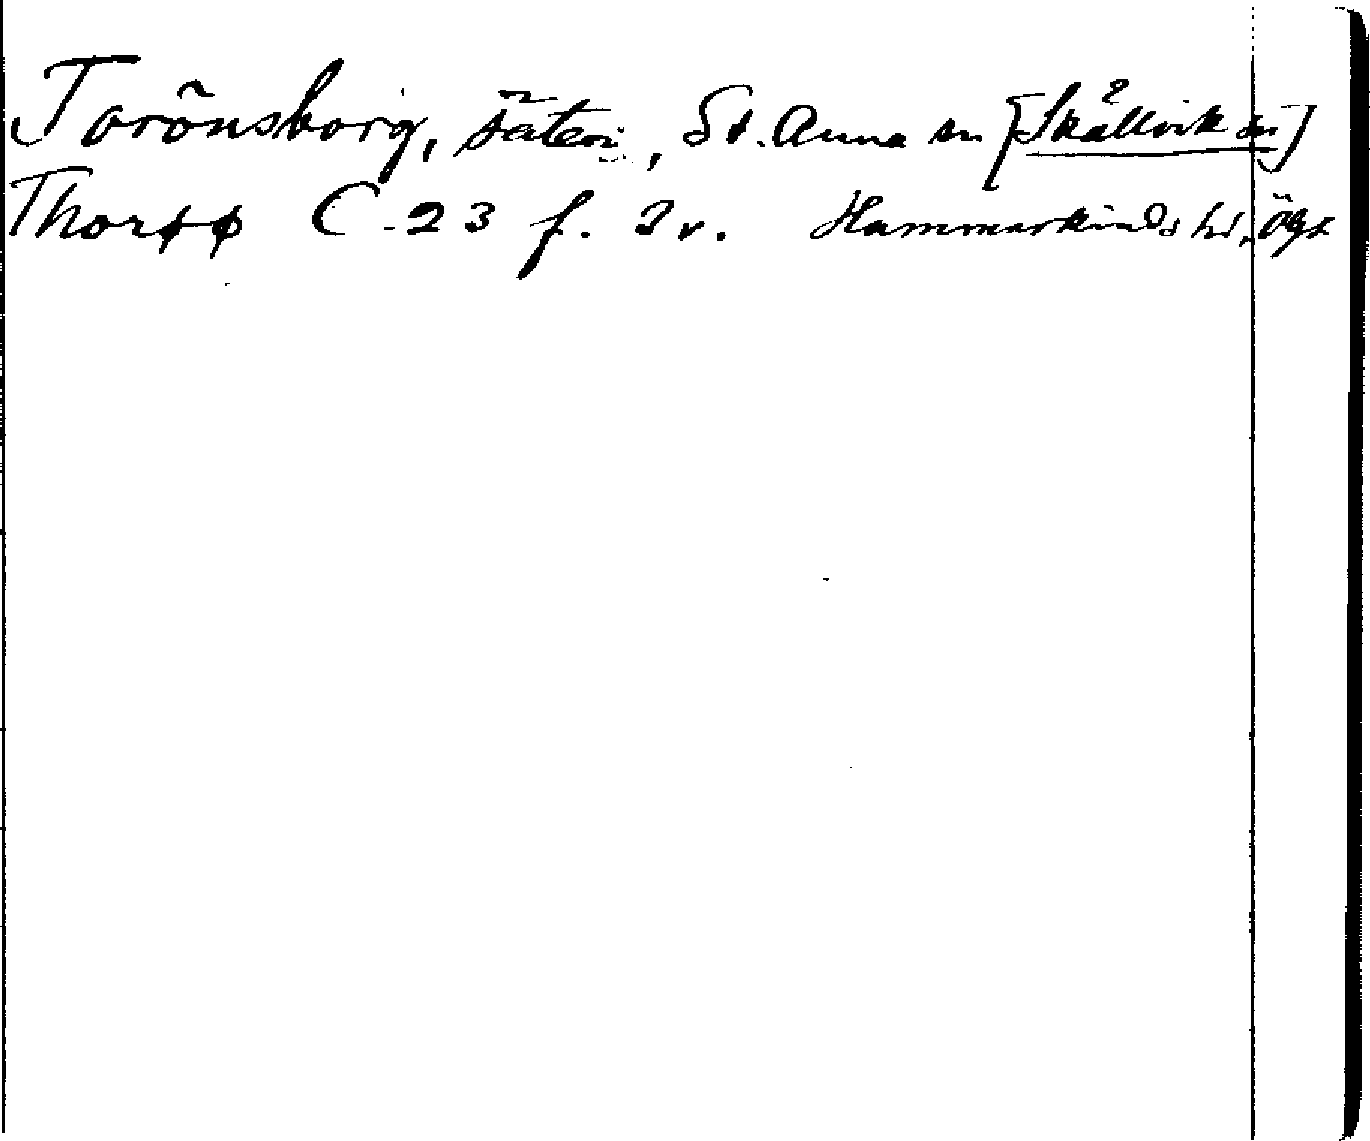 Torönsborg, säteri, St. Anna sn [Skällvik sn]
Thorøø C 23 f. 2v. Hammarkinds hd, Ögl